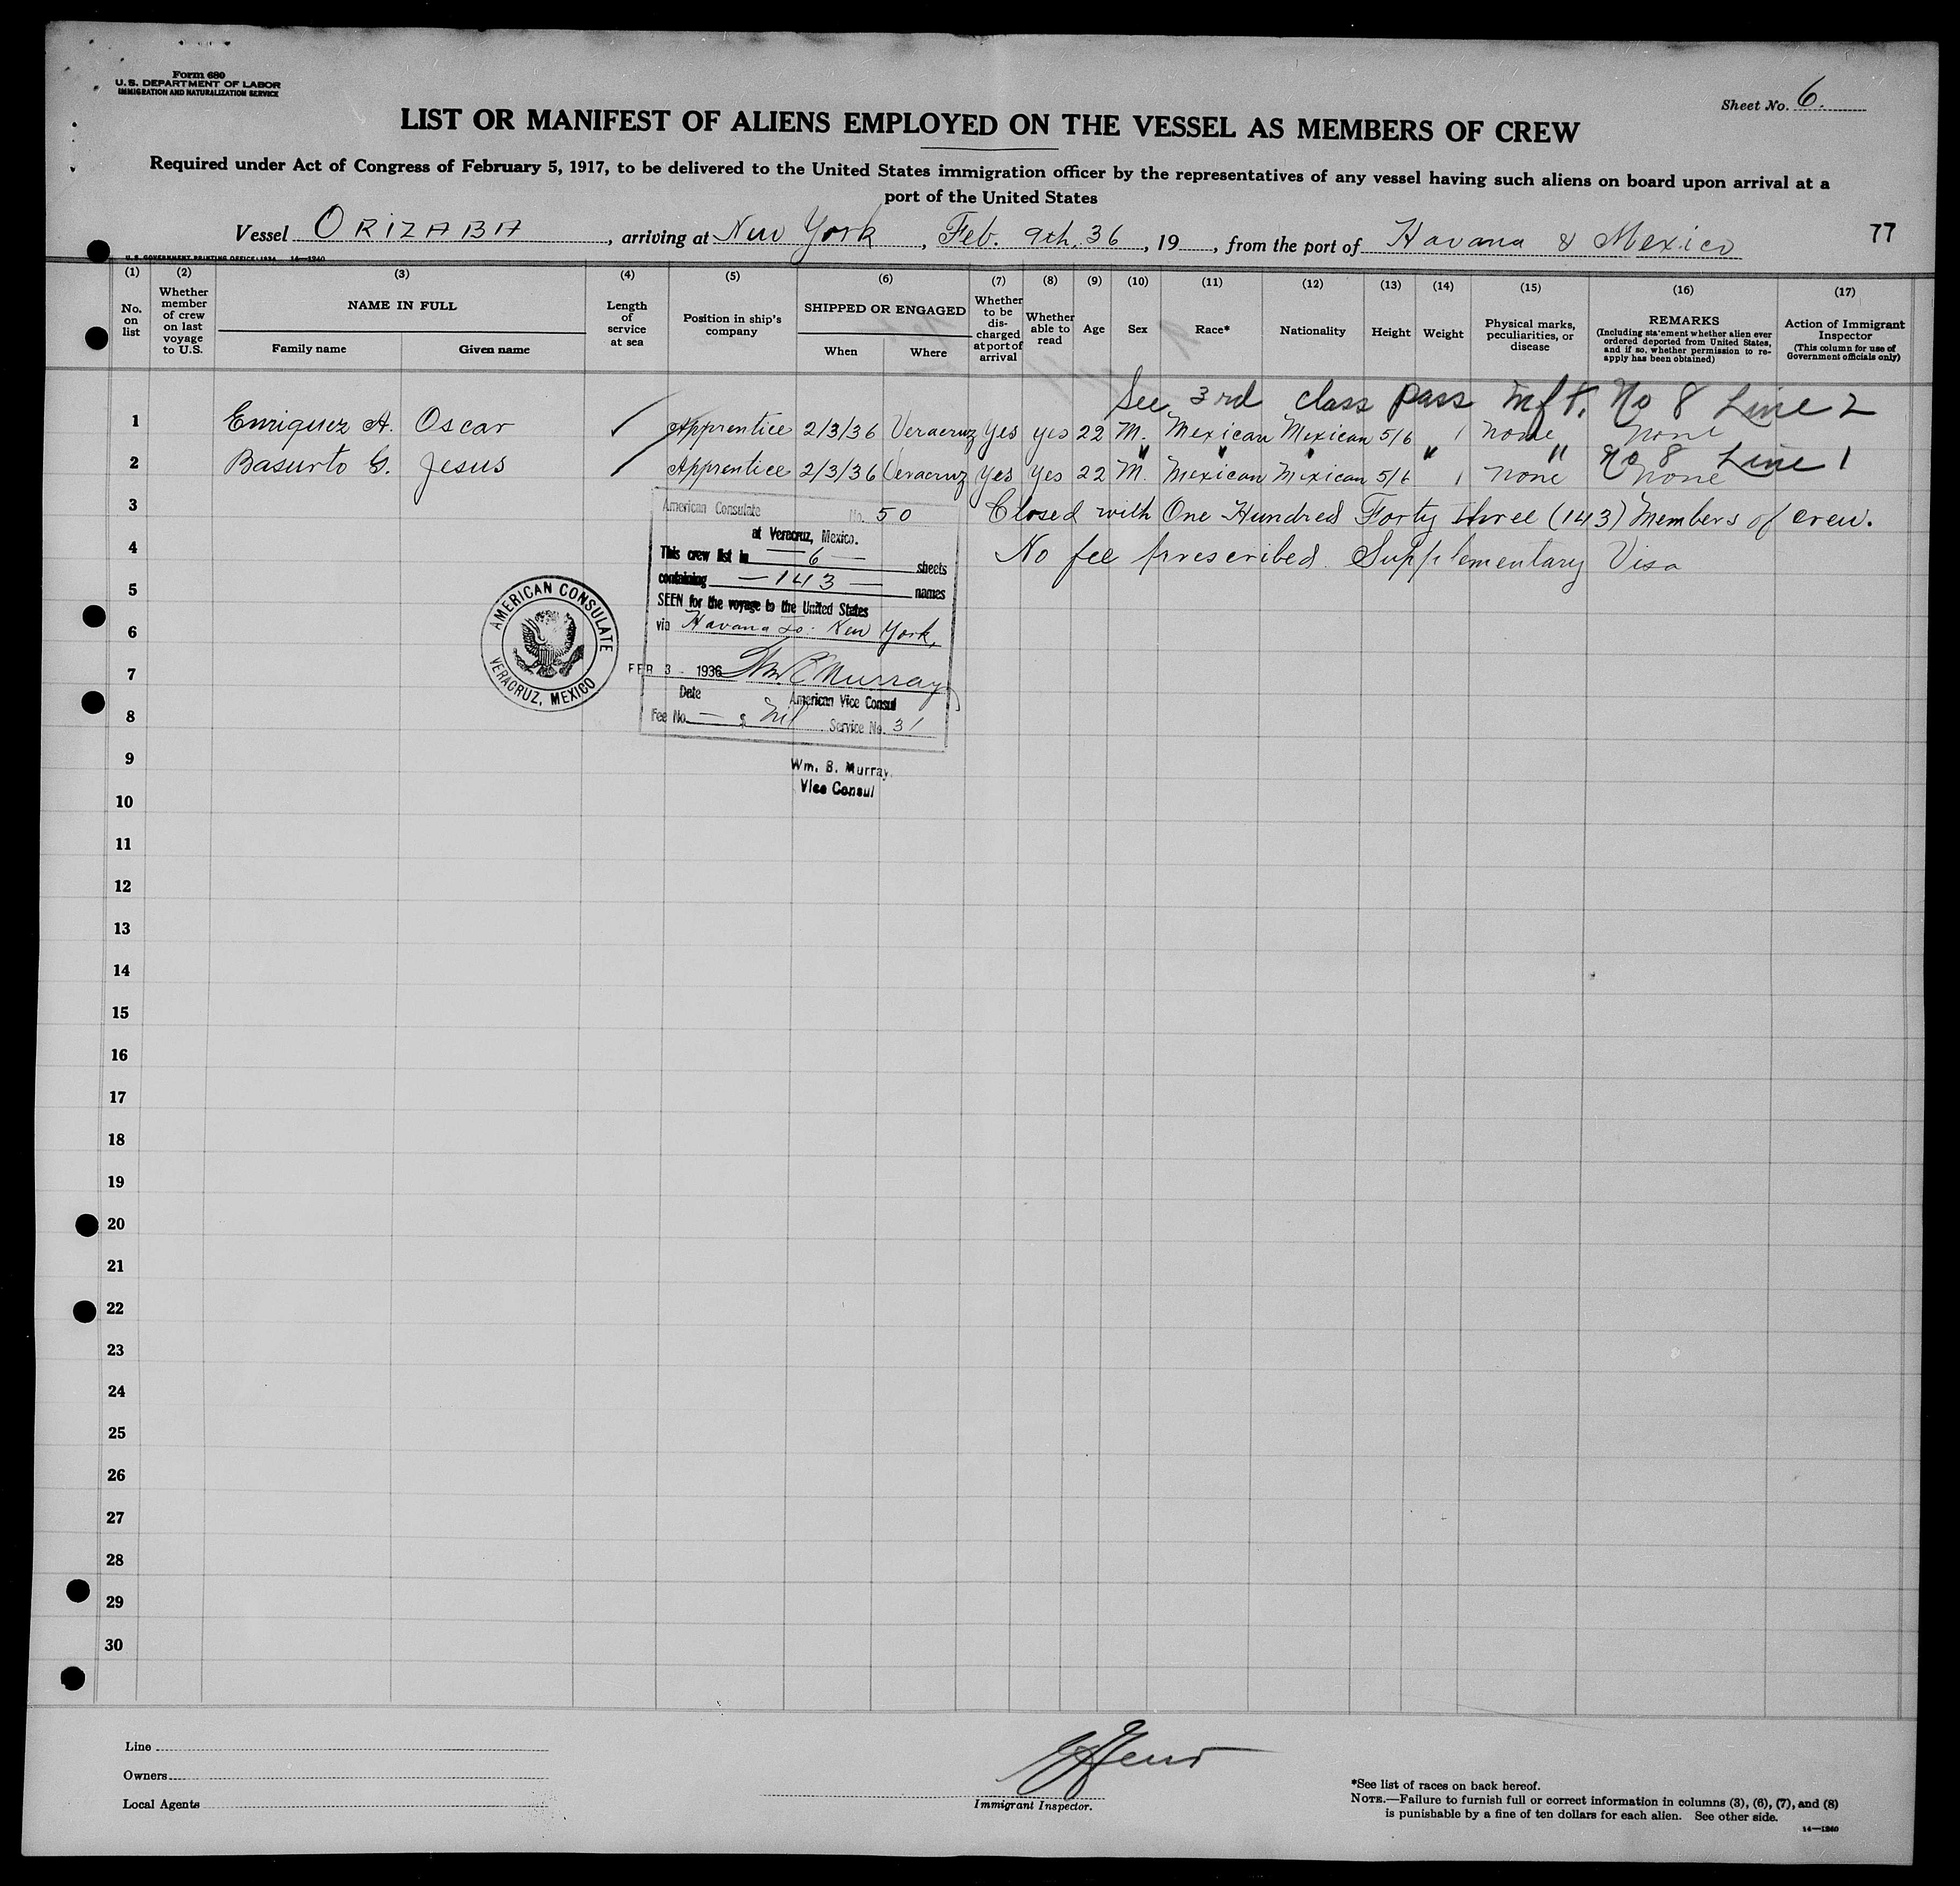 Form 680
U. S. DEPARTMENT OF LABOR
IMMIGRATION AND NATURALIZATION SERVICE
Sheet No. 6.
LIST OR MANIFEST OF ALIENS EMPLOYED ON THE VESSEL AS MEMBERS OF CREW
Required under Act of Congress of February 5, 1917, to be delivered to the United States immigration officer by the representatives of any vessel having such aliens on board upon arrival at a
port of the United States
Vessel ORIZABA, arriving at New York, Feb. 9th, 36, 19, from the port of Havana & Mexico
77
U. S. GOVERNMENT PRINTING OFFICE: 1934 14—1240
(1) (2) (3) (4) (5) (6) (7) (8) (9) (10) (11) (12) (13) (14) (15) (16) (17)
No. on list
Whether member of crew on last voyage to U.S.
NAME IN FULL
Family name Given name
Length of service at sea
Position in ship's company
SHIPPED OR ENGAGED
When Where
Whether to be discharged at port of arrival
Whether able to read
Age
Sex
Race*
Nationality
Height
Weight
Physical marks, peculiarities, or disease
REMARKS
(Including statement whether alien ever ordered deported from United States, and if so, whether permission to reapply has been obtained)
Action of Immigrant Inspector
(This column for use of Government officials only)
See 3rd class pass mft. No 8 Line 2
1 Enriquez A. Oscar Apprentice 2/3/36 Veracruz Yes yes 22 M. Mexican Mexican 5/6 1 none none
" " " " " No 8 Line 1
2 Basurto G. Jesus Apprentice 2/3/36 Veracruz Yes Yes 22 M. Mexican Mexican 5/6 1 none none
3 Closed with One Hundred Forty three (143) Members of crew.
4 No fee prescribed. Supplementary Visa
5
6
7
8
9
10
11
12
13
14
15
16
17
18
19
20
21
22
23
24
25
26
27
28
29
30
American Consulate No. 50
at Veracruz, Mexico.
This crew list in — 6 — sheets
containing — 143 — names
SEEN for the voyage to the United States
via Havana to New York,
FEB 3 - 1936 Wm B Murray
Date American Vice Consul
Fee No. — $ Nil Service No. 31
Wm. B. Murray
Vice Consul
AMERICAN CONSULATE
VERACRUZ, MEXICO
Line
Owners
Local Agents
Immigrant Inspector.
*See list of races on back hereof.
NOTE.—Failure to furnish full or correct information in columns (3), (6), (7), and (8)
is punishable by a fine of ten dollars for each alien. See other side.
14—1240